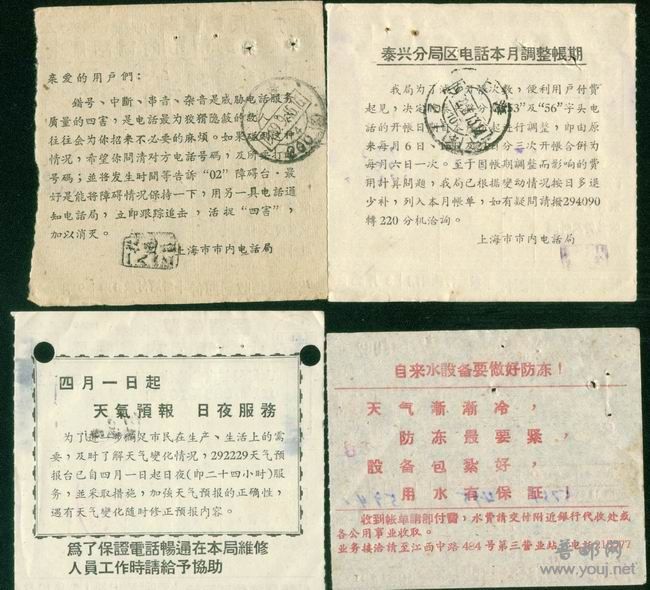 亲爱的用户們：
錯号、中断、串音、杂音是威胁电話服务
质量的四害，是电話最为狡猾隐蔽的
往往会为你招来不必要的麻烦。如果
情况，希望你問清对方电話号码，及所
号码；並将发生时間等告訴"02"障碍台，最
好是能将障碍情况保持一下，用另一具电話通
知电話局，立即跟踪追击，活捉"四害"，
加以消灭。
上海市市内电話局
泰兴分局区电話本月調整帳期
我局为了 次数，便利用戶付費
起見，决定 分 53"及"56"字头电
話的开帐日 起进行調整，即由原
来每月6日、 21日分三次开帐合併为
每月六日一次。至于因帳期調整而影响的費
用計算問題，我局已根据变动情况按日多退
少补，列入本月帐单，如有疑問請撥294090
轉220分机洽詢。
上海市市内电話局
四月一日起
天氣預報 日夜服務
为了进一步滿足市民在生产、生活上的需
要，及时了解天气变化情况，292229天气預
报台已自四月一日起日夜(即二十四小时)服
务，並采取措施，加强天气預报的正确性，
遇有天气变化随时修正预报内容。
為了保證電話暢通在本局維修
人員工作時請給予協助
自来水設备要做好防冻！
天气漸漸冷，
防冻最要紧，
設备包紮好，
用水有保証！
收到帐单請即付費，水費請交付附近銀行代收处或
各公用事业收取。
业务接洽請至江西中路484号第三营业站
昔邮网
www.youj.net